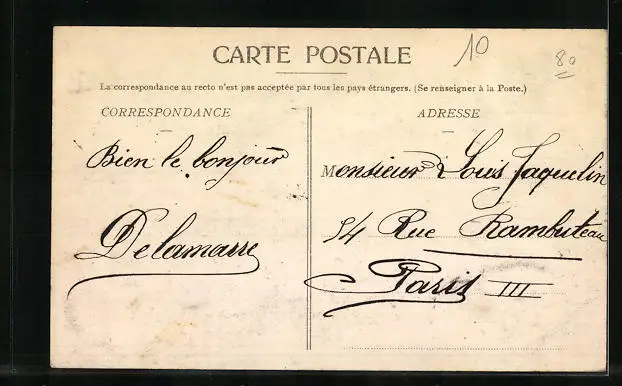 CARTE POSTALE
10
80
La correspondance au recto n'est pas acceptée par tous les pays étrangers. (Se renseigner à la Poste.)
CORRESPONDANCE
Bien le bonjour
Delamarre
ADRESSE
Monsieur Louis Jaquelin
54 Rue Rambuteau
Paris III